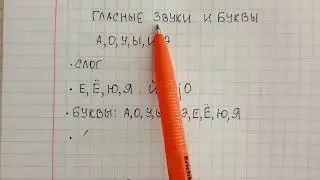 ГЛАСНЫЕ ЗВУКИ И БУКВЫ
А,О,У,Ы,И,Э
• СЛОГ
• Е,Ё,Ю,Я Й jО
• БУКВЫ: А,О,У,Ы Э,Е,Ё,Ю,Я
•